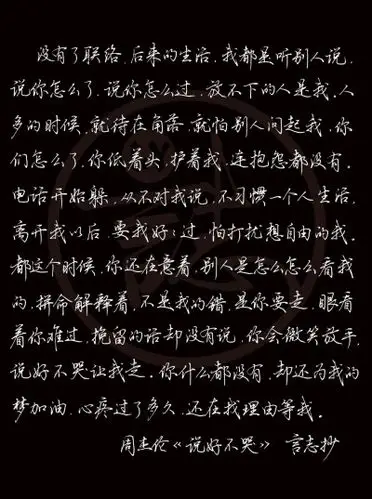 没有了联络，后来的生活，我都是听别人说，
说你怎么了，说你怎么过，放不下的人是我，人
多的时候，就待在角落，就怕别人问起我，你
们怎么了，你低着头，护着我，连抱怨都没有。
电话开始躲，从不对我说，不习惯一个人生活，
离开我以后，要我好过，怕打扰想自由的我。
都这个时候，你还在意着，别人是怎么怎么看我
的，拼命解释着，不是我的错，是你要走，眼看
着你难过，挽留的话却没有说，你会微笑放手，
说好不哭让我走。你什么都没有，却还为我的
梦加油，心疼过了多久，还在找理由等我。
周杰伦《说好不哭》 言志抄